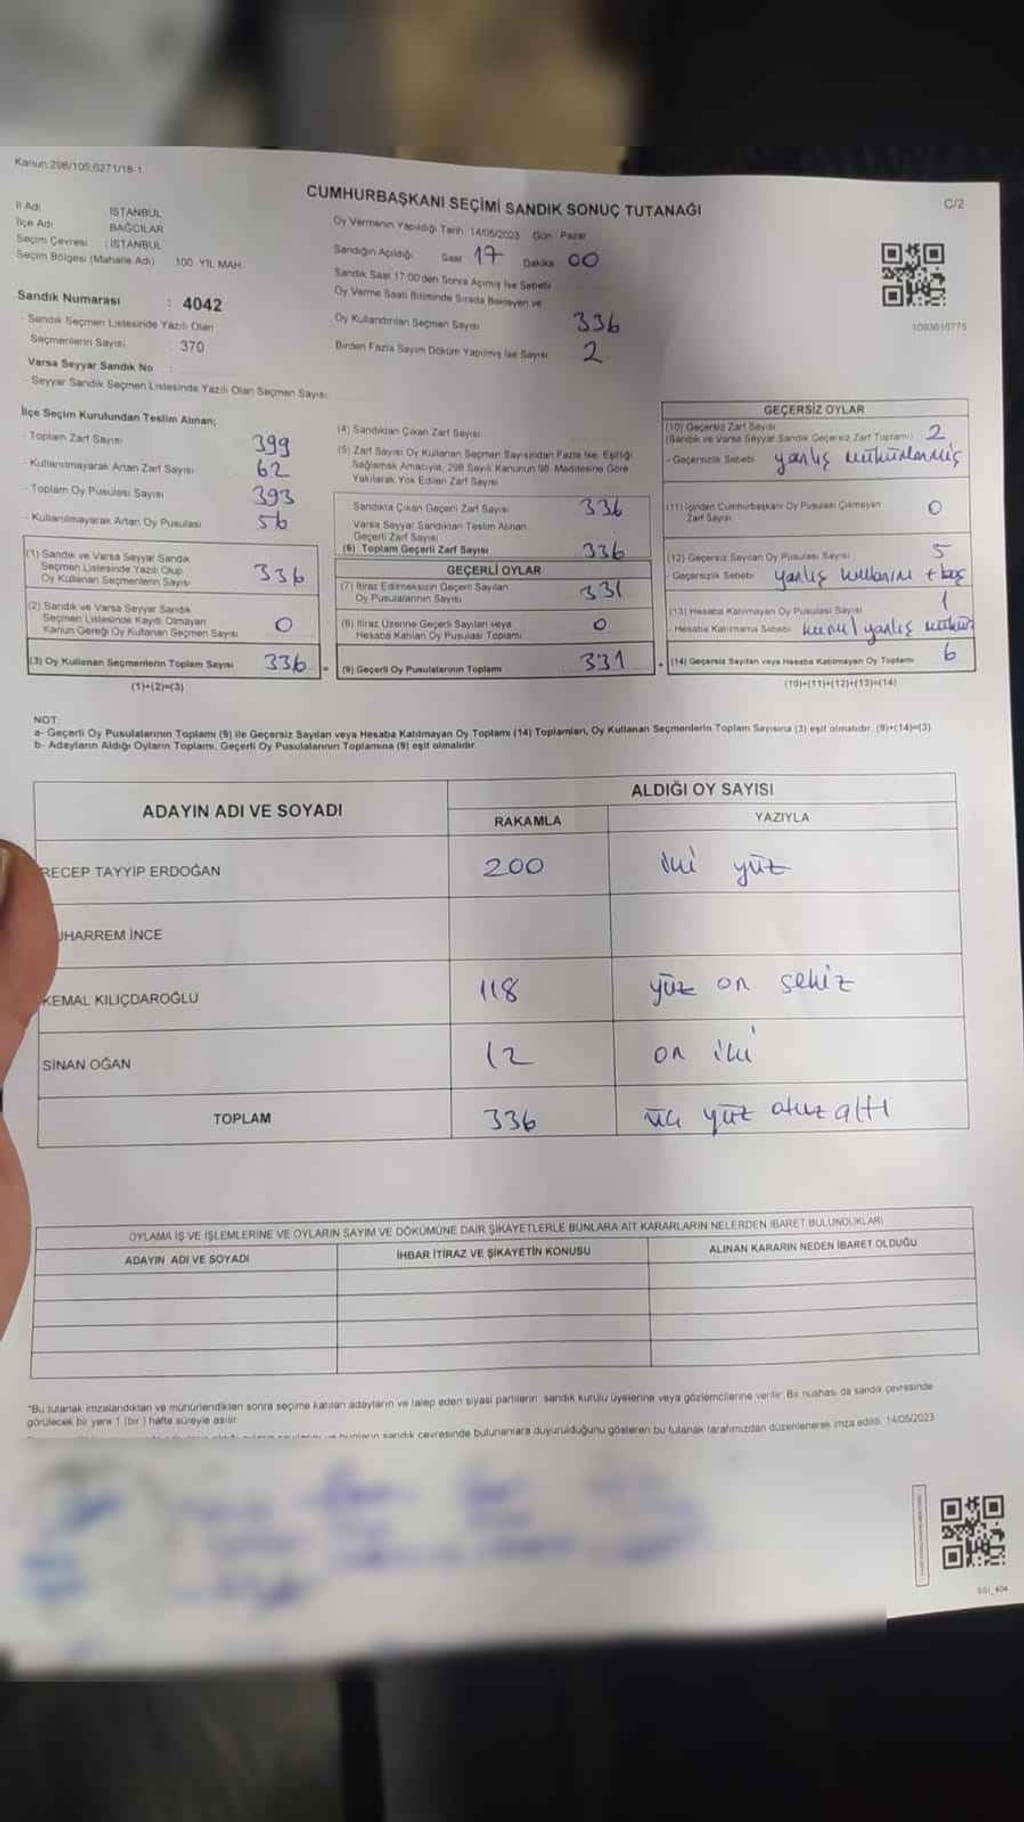 Kanun:298/105;6271/18-1
CUMHURBAŞKANI SEÇİMİ SANDIK SONUÇ TUTANAĞI
C/2
İl Adı : İSTANBUL
İlçe Adı : BAĞCILAR
Seçim Çevresi : İSTANBUL
Seçim Bölgesi (Mahalle Adı) : 100. YIL MAH.
Sandık Numarası : 4042
- Sandık Seçmen Listesinde Yazılı Olan
Seçmenlerin Sayısı : 370
Varsa Seyyar Sandık No :
- Seyyar Sandık Seçmen Listesinde Yazılı Olan Seçmen Sayısı:
Oy Vermenin Yapıldığı Tarih: 14/05/2023 Gün: Pazar
Sandığın Açıldığı Saat 17 Dakika 00
Sandık Saat 17:00'den Sonra Açılmış İse Sebebi
Oy Verme Saati Bitiminde Sırada Bekleyen ve
Oy Kullandırılan Seçmen Sayısı 336
Birden Fazla Sayım Döküm Yapılmış İse Sayısı 2
İlçe Seçim Kurulundan Teslim Alınan;
- Toplam Zarf Sayısı 399
- Kullanılmayarak Artan Zarf Sayısı 62
- Toplam Oy Pusulası Sayısı 393
- Kullanılmayarak Artan Oy Pusulası 56
(1) Sandık ve Varsa Seyyar Sandık
Seçmen Listesinde Yazılı Olup
Oy Kullanan Seçmenlerin Sayısı 336
(2) Sandık ve Varsa Seyyar Sandık
Seçmen Listesinde Kayıtlı Olmayan
Kanun Gereği Oy Kullanan Seçmen Sayısı 0
(3) Oy Kullanan Seçmenlerin Toplam Sayısı 336 =
(1)+(2)=(3)
(4) Sandıktan Çıkan Zarf Sayısı
(5) Zarf Sayısı Oy Kullanan Seçmen Sayısından Fazla İse, Eşitliği
Sağlamak Amacıyla, 298 Sayılı Kanunun 98. Maddesine Göre
Yakılarak Yok Edilen Zarf Sayısı
Sandıkta Çıkan Geçerli Zarf Sayısı 336
Varsa Seyyar Sandıktan Teslim Alınan
Geçerli Zarf Sayısı
(6) Toplam Geçerli Zarf Sayısı 336
GEÇERLİ OYLAR
(7) İtiraz Edilmeksizin Geçerli Sayılan
Oy Pusulalarının Sayısı 331
(8) İtiraz Üzerine Geçerli Sayılan veya
Hesaba Katılan Oy Pusulası Toplamı 0
(9) Geçerli Oy Pusulalarının Toplamı 331 +
GEÇERSİZ OYLAR
(10) Geçersiz Zarf Sayısı
(Sandık ve Varsa Seyyar Sandık Geçersiz Zarf Toplamı) 2
- Geçersizlik Sebebi: yanlış mühürlenmiş
(11) İçinden Cumhurbaşkanı Oy Pusulası Çıkmayan
Zarf Sayısı 0
(12) Geçersiz Sayılan Oy Pusulası Sayısı 5
- Geçersizlik Sebebi: yanlış kullanım + boş
(13) Hesaba Katılmayan Oy Pusulası Sayısı 1
- Hesaba Katılmama Sebebi: yanlış mühür
(14) Geçersiz Sayılan veya Hesaba Katılmayan Oy Toplamı 6
(10)+(11)+(12)+(13)=(14)
NOT:
a- Geçerli Oy Pusulalarının Toplamı (9) ile Geçersiz Sayılan veya Hesaba Katılmayan Oy Toplamı (14) Toplamları, Oy Kullanan Seçmenlerin Toplam Sayısına (3) eşit olmalıdır. (9)+(14)=(3)
b- Adayların Aldığı Oyların Toplamı, Geçerli Oy Pusulalarının Toplamına (9) eşit olmalıdır.
ADAYIN ADI VE SOYADI
ALDIĞI OY SAYISI
RAKAMLA YAZIYLA
RECEP TAYYİP ERDOĞAN 200 iki yüz
UHARREM İNCE
KEMAL KILIÇDAROĞLU 118 yüz on sekiz
SİNAN OĞAN 12 on iki
TOPLAM 336 üç yüz otuz altı
OYLAMA İŞ VE İŞLEMLERİNE VE OYLARIN SAYIM VE DÖKÜMÜNE DAİR ŞİKAYETLERLE BUNLARA AİT KARARLARIN NELERDEN İBARET BULUNDUKLARI
ADAYIN ADI VE SOYADI İHBAR İTİRAZ VE ŞİKAYETİN KONUSU ALINAN KARARIN NEDEN İBARET OLDUĞU
"Bu tutanak imzalandıktan ve mühürlendikten sonra seçime katılan adayların ve talep eden siyasi partilerin sandık kurulu üyelerine veya gözlemcilerine verilir. Bir nüshası da sandık çevresinde
görülecek bir yere 1 (bir) hafta süreyle asılır.
sandık çevresinde bulunanlara duyurulduğunu gösteren bu tutanak tarafımızdan düzenlenerek imza edildi. 14/05/2023